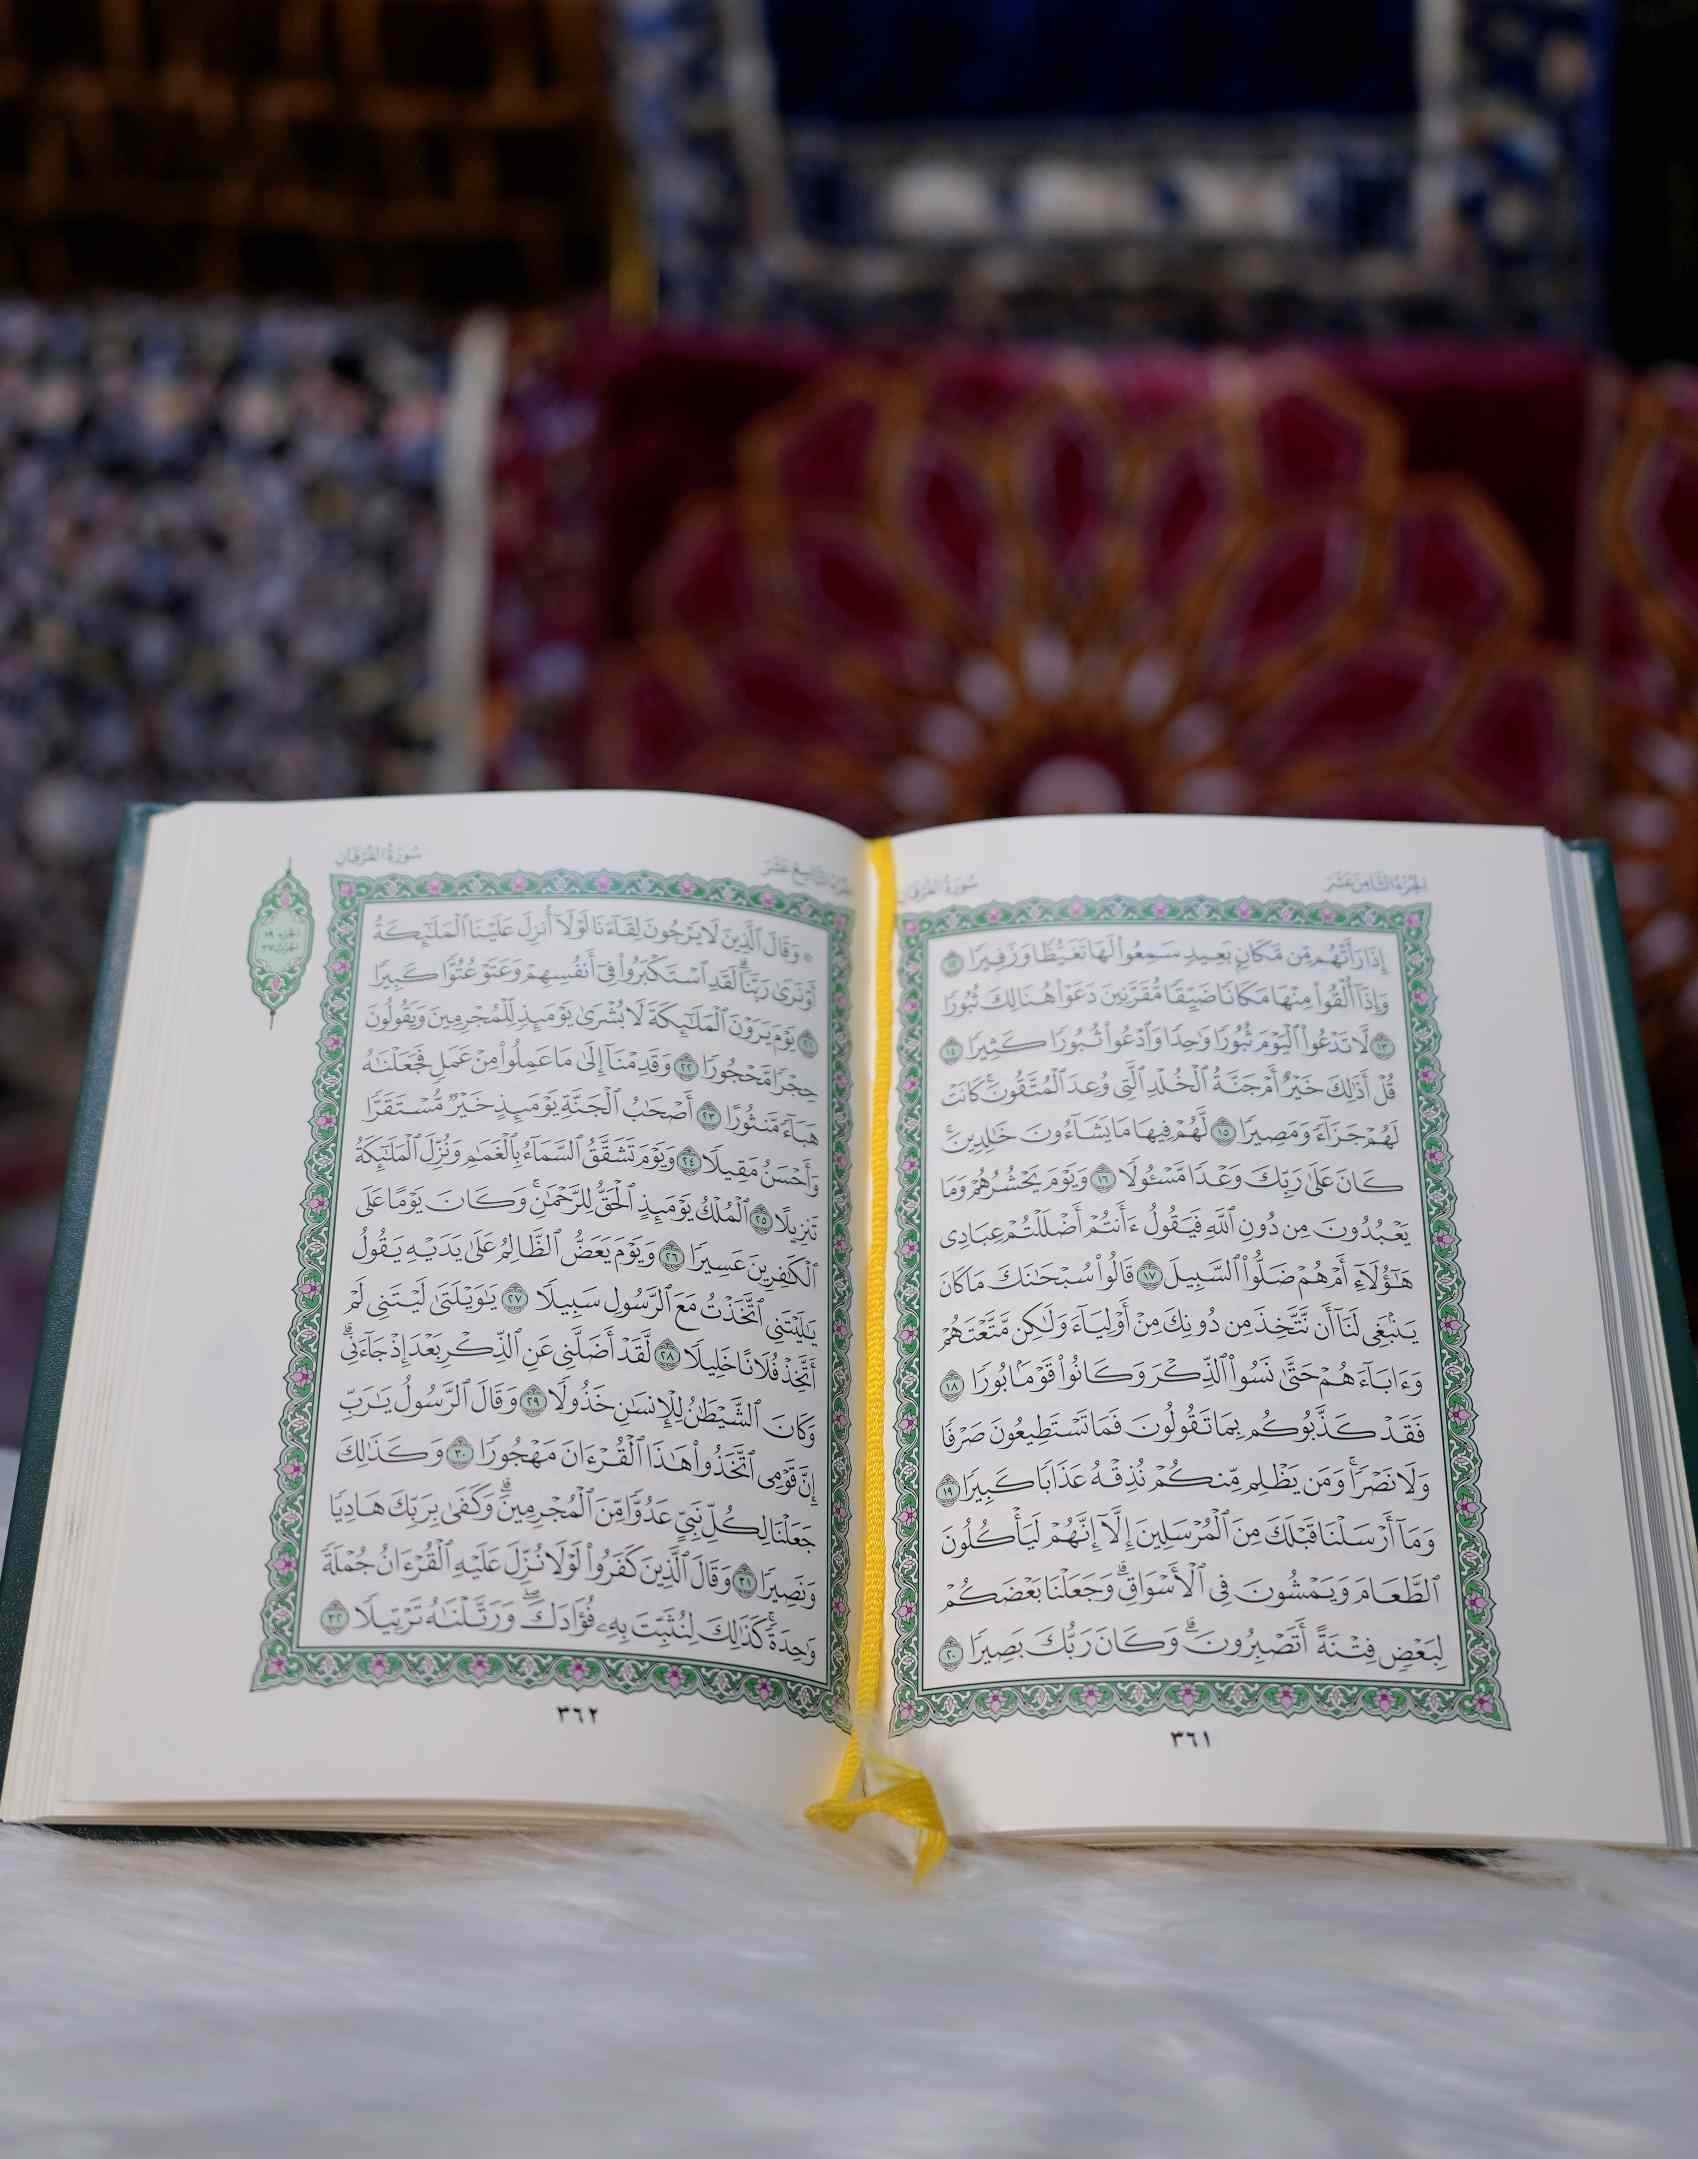 سُورَةُ الفُرْقَانِ
الجُزْءُ الثَّامِنَ عَشَرَ
إِذَا رَأَتْهُم مِّن مَّكَانٍۭ بَعِيدٍ سَمِعُوا۟ لَهَا تَغَيُّظًا وَزَفِيرًا ١٢
وَإِذَآ أُلْقُوا۟ مِنْهَا مَكَانًا ضَيِّقًا مُّقَرَّنِينَ دَعَوْا۟ هُنَالِكَ ثُبُورًا
١٣ لَّا تَدْعُوا۟ ٱلْيَوْمَ ثُبُورًا وَٰحِدًا وَٱدْعُوا۟ ثُبُورًا كَثِيرًا ١٤
قُلْ أَذَٰلِكَ خَيْرٌ أَمْ جَنَّةُ ٱلْخُلْدِ ٱلَّتِى وُعِدَ ٱلْمُتَّقُونَ ۚ كَانَتْ
لَهُمْ جَزَآءً وَمَصِيرًا ١٥ لَّهُمْ فِيهَا مَا يَشَآءُونَ خَٰلِدِينَ ۚ
كَانَ عَلَىٰ رَبِّكَ وَعْدًا مَّسْـُٔولًا ١٦ وَيَوْمَ يَحْشُرُهُمْ وَمَا
يَعْبُدُونَ مِن دُونِ ٱللَّهِ فَيَقُولُ ءَأَنتُمْ أَضْلَلْتُمْ عِبَادِى
هَٰٓؤُلَآءِ أَمْ هُمْ ضَلُّوا۟ ٱلسَّبِيلَ ١٧ قَالُوا۟ سُبْحَٰنَكَ مَا كَانَ
يَنۢبَغِى لَنَآ أَن نَّتَّخِذَ مِن دُونِكَ مِنْ أَوْلِيَآءَ وَلَٰكِن مَّتَّعْتَهُمْ
وَءَابَآءَهُمْ حَتَّىٰ نَسُوا۟ ٱلذِّكْرَ وَكَانُوا۟ قَوْمًۢا بُورًا ١٨
فَقَدْ كَذَّبُوكُم بِمَا تَقُولُونَ فَمَا تَسْتَطِيعُونَ صَرْفًا
وَلَا نَصْرًا ۚ وَمَن يَظْلِم مِّنكُمْ نُذِقْهُ عَذَابًا كَبِيرًا ١٩
وَمَآ أَرْسَلْنَا قَبْلَكَ مِنَ ٱلْمُرْسَلِينَ إِلَّآ إِنَّهُمْ لَيَأْكُلُونَ
ٱلطَّعَامَ وَيَمْشُونَ فِى ٱلْأَسْوَاقِ ۗ وَجَعَلْنَا بَعْضَكُمْ
لِبَعْضٍ فِتْنَةً أَتَصْبِرُونَ ۗ وَكَانَ رَبُّكَ بَصِيرًا ٢٠
٣٦١
الجُزْءُ التَّاسِعَ عَشَرَ
سُورَةُ الفُرْقَانِ
الجزء ١٩
الحزب ٣٧
۞ وَقَالَ ٱلَّذِينَ لَا يَرْجُونَ لِقَآءَنَا لَوْلَآ أُنزِلَ عَلَيْنَا ٱلْمَلَٰٓئِكَةُ
أَوْ نَرَىٰ رَبَّنَا ۗ لَقَدِ ٱسْتَكْبَرُوا۟ فِىٓ أَنفُسِهِمْ وَعَتَوْ عُتُوًّا كَبِيرًا
٢١ يَوْمَ يَرَوْنَ ٱلْمَلَٰٓئِكَةَ لَا بُشْرَىٰ يَوْمَئِذٍ لِّلْمُجْرِمِينَ وَيَقُولُونَ
حِجْرًا مَّحْجُورًا ٢٢ وَقَدِمْنَآ إِلَىٰ مَا عَمِلُوا۟ مِنْ عَمَلٍ فَجَعَلْنَٰهُ
هَبَآءً مَّنثُورًا ٢٣ أَصْحَٰبُ ٱلْجَنَّةِ يَوْمَئِذٍ خَيْرٌ مُّسْتَقَرًّا
وَأَحْسَنُ مَقِيلًا ٢٤ وَيَوْمَ تَشَقَّقُ ٱلسَّمَآءُ بِٱلْغَمَٰمِ وَنُزِّلَ ٱلْمَلَٰٓئِكَةُ
تَنزِيلًا ٢٥ ٱلْمُلْكُ يَوْمَئِذٍ ٱلْحَقُّ لِلرَّحْمَٰنِ ۚ وَكَانَ يَوْمًا عَلَى
ٱلْكَٰفِرِينَ عَسِيرًا ٢٦ وَيَوْمَ يَعَضُّ ٱلظَّالِمُ عَلَىٰ يَدَيْهِ يَقُولُ
يَٰلَيْتَنِى ٱتَّخَذْتُ مَعَ ٱلرَّسُولِ سَبِيلًا ٢٧ يَٰوَيْلَتَىٰ لَيْتَنِى لَمْ
أَتَّخِذْ فُلَانًا خَلِيلًا ٢٨ لَّقَدْ أَضَلَّنِى عَنِ ٱلذِّكْرِ بَعْدَ إِذْ جَآءَنِى ۗ
وَكَانَ ٱلشَّيْطَٰنُ لِلْإِنسَٰنِ خَذُولًا ٢٩ وَقَالَ ٱلرَّسُولُ يَٰرَبِّ
إِنَّ قَوْمِى ٱتَّخَذُوا۟ هَٰذَا ٱلْقُرْءَانَ مَهْجُورًا ٣٠ وَكَذَٰلِكَ
جَعَلْنَا لِكُلِّ نَبِىٍّ عَدُوًّا مِّنَ ٱلْمُجْرِمِينَ ۗ وَكَفَىٰ بِرَبِّكَ هَادِيًا
وَنَصِيرًا ٣١ وَقَالَ ٱلَّذِينَ كَفَرُوا۟ لَوْلَا نُزِّلَ عَلَيْهِ ٱلْقُرْءَانُ جُمْلَةً
وَٰحِدَةً ۚ كَذَٰلِكَ لِنُثَبِّتَ بِهِۦ فُؤَادَكَ ۖ وَرَتَّلْنَٰهُ تَرْتِيلًا ٣٢
٣٦٢